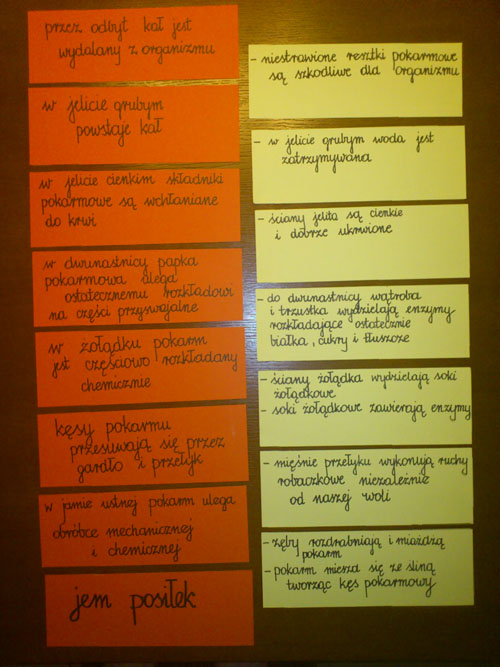 przez odbyt kał jest
wydalany z organizmu
w jelicie grubym
powstaje kał
w jelicie cienkim składniki
pokarmowe są wchłaniane
do krwi
w dwunastnicy papka
pokarmowa ulega
ostatecznemu rozkładowi
na części przyswajalne
w żołądku pokarm
jest częściowo rozkładany
chemicznie
kęsy pokarmu
przesuwają się przez
gardło i przełyk
w jamie ustnej pokarm ulega
obróbce mechanicznej
i chemicznej
jem posiłek
- niestrawione resztki pokarmowe
są szkodliwe dla organizmu
- w jelicie grubym woda jest
zatrzymywana
- ściany jelita są cienkie
i dobrze ukrwione
- do dwunastnicy wątroba
i trzustka wydzielają enzymy
rozkładające ostatecznie
białka, cukry i tłuszcze
- ściany żołądka wydzielają soki
żołądkowe
- soki żołądkowe zawierają enzymy
- mięśnie przełyku wykonują ruchy
robaczkowe niezależnie
od naszej woli
- zęby rozdrabniają i miażdżą
pokarm
- pokarm miesza się ze śliną
tworząc kęs pokarmowy